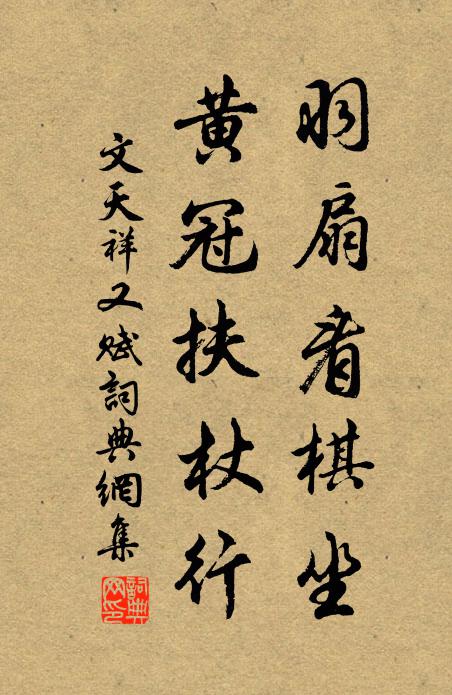 羽扇看棋坐
黃冠扶杖行
文天祥又賦詞典網集
詞典網印